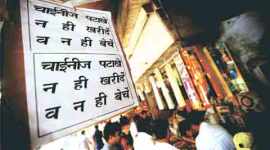 चाईनीज पटाखे
न ही खरीदें
व न ही बेचें
चाईनीज पटाखे
न ही खरीदें
व न ही बेचें